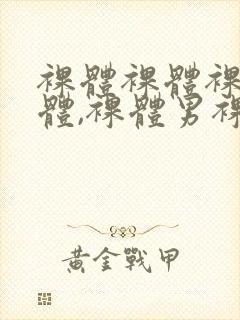 裸體裸體裸
體,裸體男裸
黃金戰甲